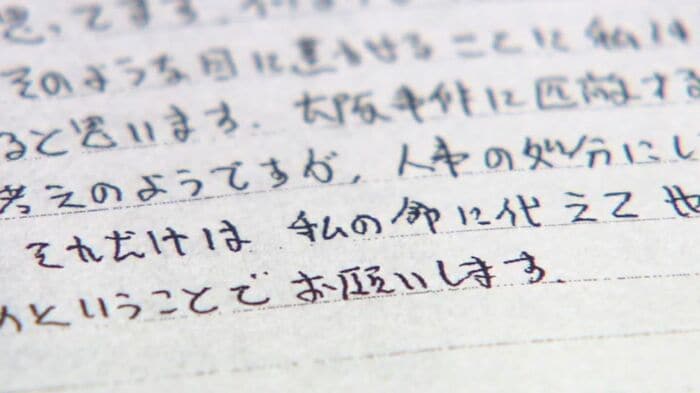 思ってます。
そのような目に遭わせることに私は
ると思います。大阪事件に匹敵する
考えのようですが、人事の処分にし
それだけは 私の命に代えて
ということで お願いします。